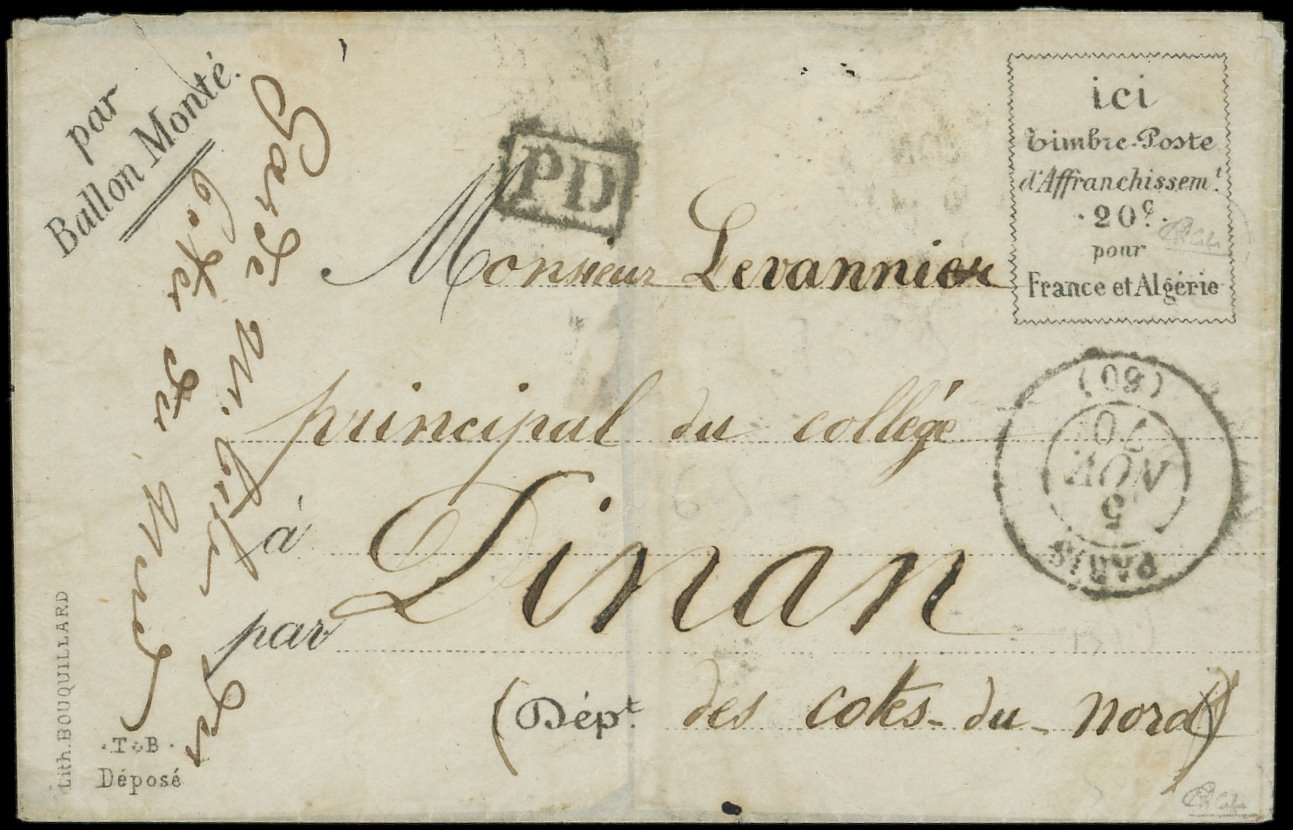 par
Ballon Monté.
PD
ici
Timbre-Poste
d'Affranchissem.t
·20c·
pour
France et Algérie
Monsieur Levannier
principal du collége
à Dinan
par
(Dépt. des cotes-du-nord)
(60)
70
NOV
5
PARIS
Garde M.
du Nord
Lith. BOUQUILLARD
·T B·
Déposé